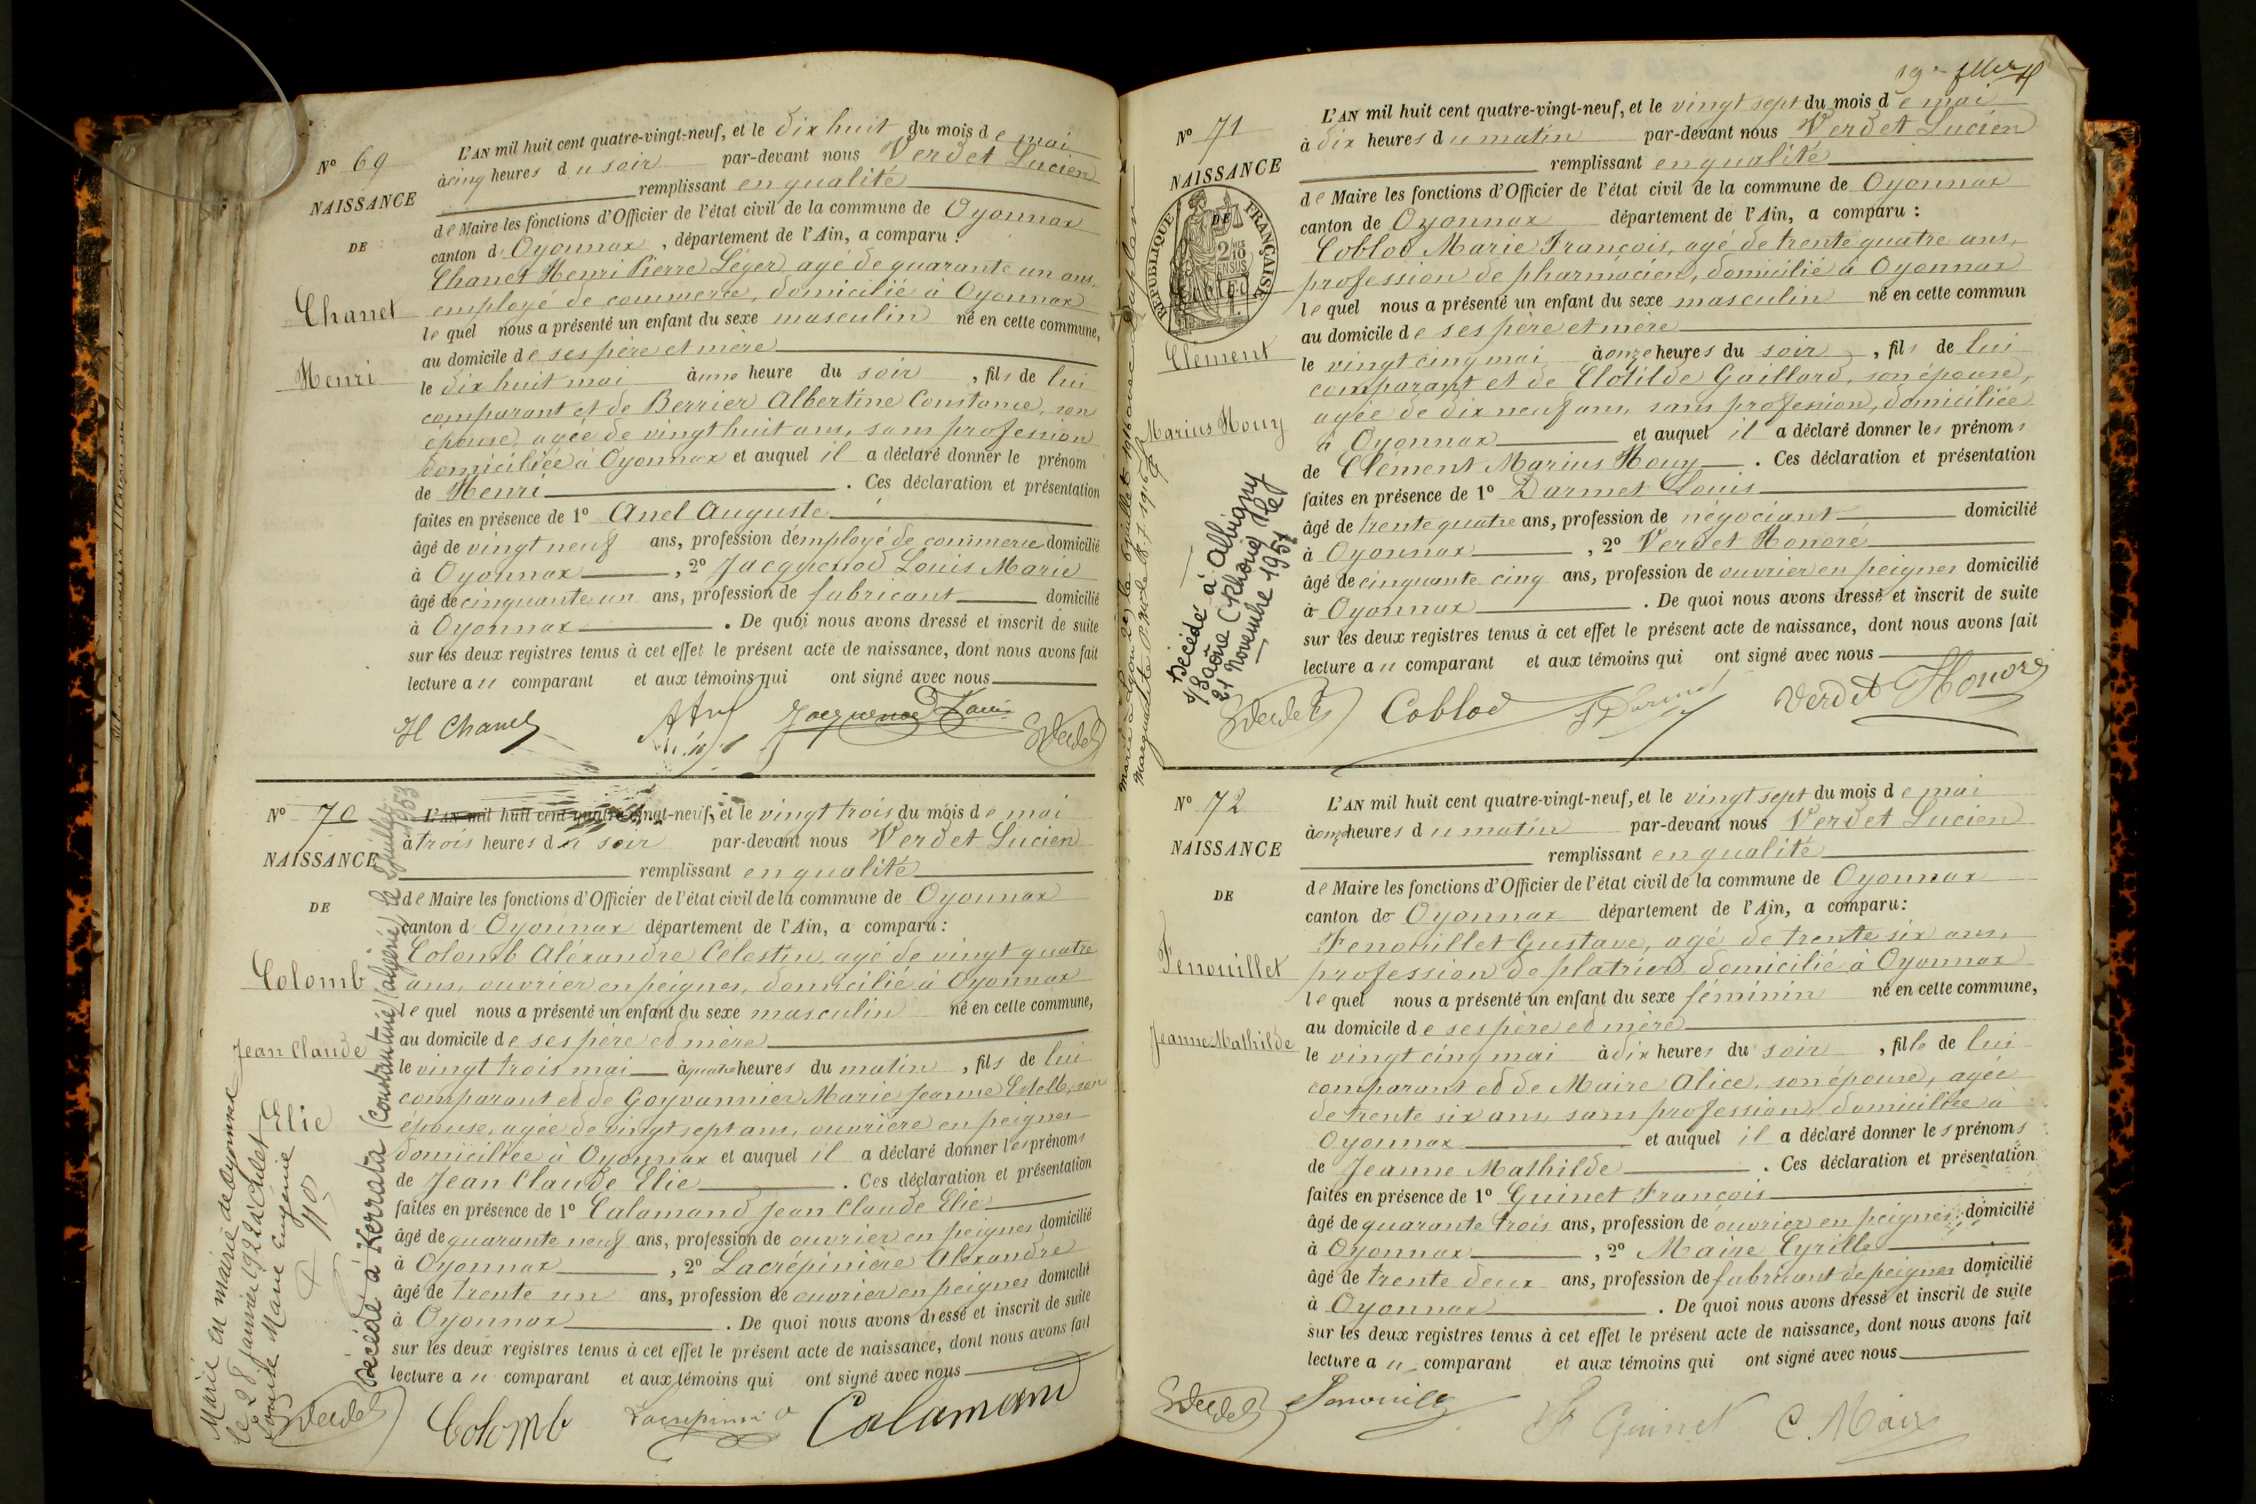 N° 69
NAISSANCE
DE
Chanel
Henri
L'AN mil huit cent quatre-vingt-neuf, et le dix huit du mois de mai
à cinq heures du soir par-devant nous Verdet Lucien
remplissant en qualité
de Maire les fonctions d'Officier de l'état civil de la commune de Oyonnax
canton d Oyonnax, département de l'Ain, a comparu :
Chanel Henri Pierre Léger, agé de quarante un ans,
employé de commerce, domicilié à Oyonnax
lequel nous a présenté un enfant du sexe masculin né en cette commune,
au domicile de ses père et mère
le dix huit mai à une heure du soir, fils de lui
comparant et de Berrier Albertine Constance, son
épouse, agée de vingt huit ans, sans profession
domiciliée à Oyonnax et auquel il a déclaré donner le prénom
de Henri . Ces déclaration et présentation
faites en présence de 1° Anel Auguste
âgé de vingt neuf ans, profession d'employé de commerce domicilié
à Oyonnax , 2° Jacquenod Louis Marie
âgé de cinquante un ans, profession de fabricant domicilié
à Oyonnax . De quoi nous avons dressé et inscrit de suite
sur les deux registres tenus à cet effet le présent acte de naissance, dont nous avons fait
lecture au comparant et aux témoins qui ont signé avec nous
H Chanel Jacquenod Louis Verdet
N° 70
NAISSANCE
DE
Colomb
Jean Claude
Elie
Marié en mairie de Oyonnax
le 28 janvier 1922 à
Marie Eugénie
Décédé à Kerrata (Constantine) (algérie) le juillet 1953
L'AN mil huit cent quatre-vingt-neuf, et le vingt trois du mois de mai
à trois heures du soir par-devant nous Verdet Lucien
remplissant en qualité
de Maire les fonctions d'Officier de l'état civil de la commune de Oyonnax
canton d Oyonnax département de l'Ain, a comparu :
Colomb Aléxandre Célestin, agé de vingt quatre
ans, ouvrier en peignes, domicilié à Oyonnax
Lequel nous a présenté un enfant du sexe masculin né en cette commune,
au domicile de ses père et mère
le vingt trois mai à quatre heures du matin, fils de lui
comparant et de Goyvannier Marie Jeanne Estelle, son
épouse, agée de vingt sept ans, ouvrière en peignes
domiciliée à Oyonnax et auquel il a déclaré donner les prénoms
de Jean Claude Elie . Ces déclaration et présentation
faites en présence de 1° Calamand Jean Claude Elie
âgé de quarante neuf ans, profession de ouvrier en peignes domicilié
à Oyonnax , 2° Lacrépinière Alexandre
âgé de trente un ans, profession de ouvrier en peignes domicilié
à Oyonnax . De quoi nous avons dressé et inscrit de suite
sur les deux registres tenus à cet effet le présent acte de naissance, dont nous avons fait
lecture au comparant et aux témoins qui ont signé avec nous
Verdet Colomb Calamand
N° 71
NAISSANCE
DE
RÉPUBLIQUE FRANÇAISE
Coblod
Clément
Marius Houy
Marié à Lyon le 6 juillet 1916 avec
Marguerite
Décédé à Albigny
s/ Saône (Rhône) le
21 Novembre 1957
L'AN mil huit cent quatre-vingt-neuf, et le vingt sept du mois de mai
à dix heures du matin par-devant nous Verdet Lucien
remplissant en qualité
de Maire les fonctions d'Officier de l'état civil de la commune de Oyonnax
canton de Oyonnax département de l'Ain, a comparu :
Coblod Marie François, agé de trente quatre ans,
profession de pharmacien, domicilié à Oyonnax
lequel nous a présenté un enfant du sexe masculin né en cette commun
au domicile de ses père et mère
le vingt cinq mai à onze heures du soir, fils de lui
comparant et de Clotilde Gaillard, son épouse,
agée de dix neuf ans, sans profession, domiciliée
à Oyonnax et auquel il a déclaré donner les prénoms
de Clément Marius Houy . Ces déclaration et présentation
faites en présence de 1° Darmet Louis
âgé de trente quatre ans, profession de négociant domicilié
à Oyonnax , 2° Verdet Honoré
âgé de cinquante cinq ans, profession de ouvrier en peignes domicilié
à Oyonnax . De quoi nous avons dressé et inscrit de suite
sur les deux registres tenus à cet effet le présent acte de naissance, dont nous avons fait
lecture au comparant et aux témoins qui ont signé avec nous
Verdet Coblod Verdet Honoré
N° 72
NAISSANCE
DE
Fenouillet
Jeanne Mathilde
L'AN mil huit cent quatre-vingt-neuf, et le vingt sept du mois de mai
à onze heures du matin par-devant nous Verdet Lucien
remplissant en qualité
de Maire les fonctions d'Officier de l'état civil de la commune de Oyonnax
canton de Oyonnax département de l'Ain, a comparu :
Fenouillet Gustave, agé de trente six ans,
profession de platrier domicilié à Oyonnax
lequel nous a présenté un enfant du sexe féminin né en cette commune,
au domicile de ses père et mère
le vingt cinq mai à dix heures du soir, fille de lui
comparant et de Maire Alice, son épouse, agée
de trente six ans, sans profession, domiciliée à
Oyonnax et auquel il a déclaré donner les prénoms
de Jeanne Mathilde . Ces déclaration et présentation
faites en présence de 1° Guinet François
âgé de quarante trois ans, profession de ouvrier en peignes domicilié
à Oyonnax , 2° Maire Cyrille
âgé de trente deux ans, profession de fabricant de peignes domicilié
à Oyonnax . De quoi nous avons dressé et inscrit de suite
sur les deux registres tenus à cet effet le présent acte de naissance, dont nous avons fait
lecture au comparant et aux témoins qui ont signé avec nous
Verdet Guinet C. Maire